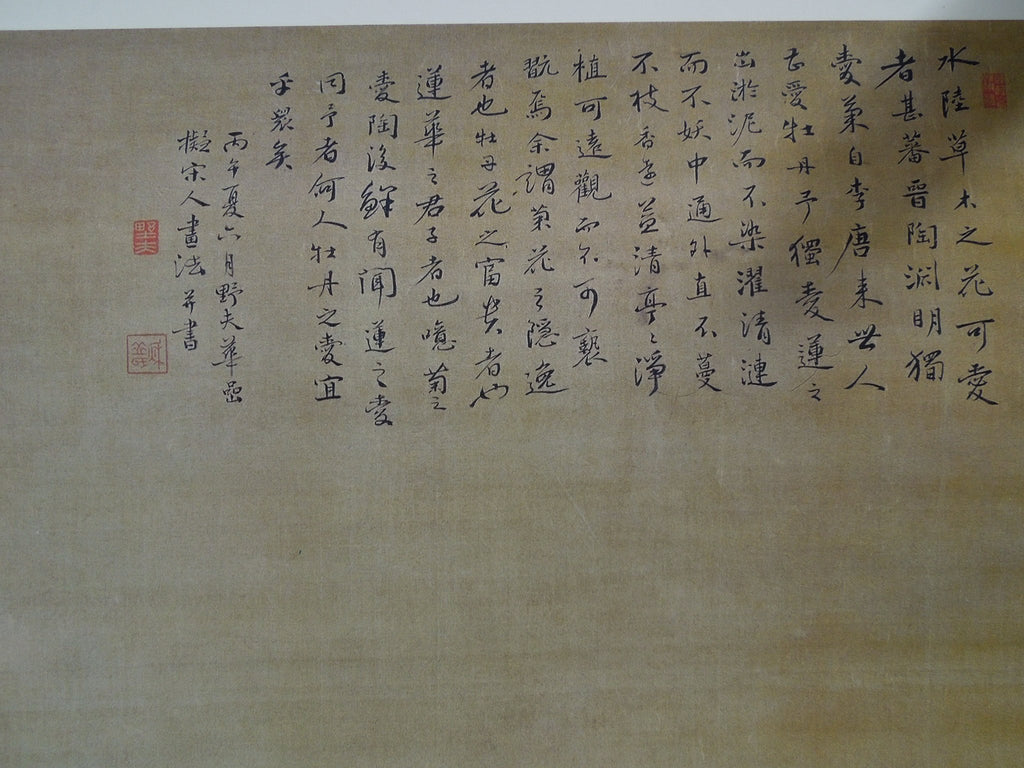 水陸草木之花可愛
者甚蕃晉陶渕明獨
愛菊自李唐来世人
甚愛牡丹予獨愛蓮之
出淤泥而不染濯清漣
而不妖中通外直不蔓
不枝香遠益清亭〻淨
植可遠觀而不可褻
翫焉余謂菊花之隱逸
者也牡丹花之富貴者也
蓮華之君子者也噫菊之
愛陶後鮮有聞蓮之愛
同予者何人牡丹之愛宜
乎衆矣
丙午夏六月野夫華喦
擬宋人畫法并書
野夫